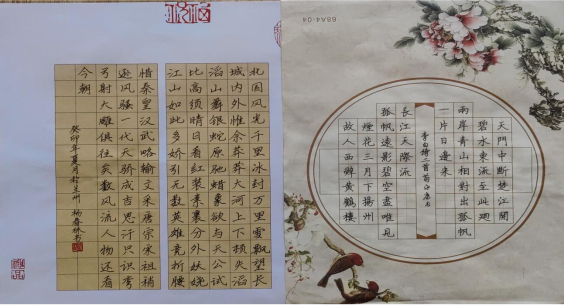 天門中断楚江開
碧水東流至此廻
兩岸青山相對出孤帆
一片日邊来
李白詩二首
故人西辭黄鶴樓
煙花三月下揚州
孤帆遠影碧空盡唯見
長江天際流
68A4-04
北国风光千里冰封万里雪飘望长
城内外惟余莽莽大河上下顿失滔
滔山舞银蛇原驰蜡象欲与天公试
比高须晴日看红装素裹分外妖娆
江山如此多娇引无数英雄竞折腰
惜秦皇汉武略输文采唐宗宋祖稍
逊风骚一代天骄成吉思汗只识弯
弓射大雕俱往矣数风流人物还看
今朝
癸卯年夏月於兰州 杨春林书